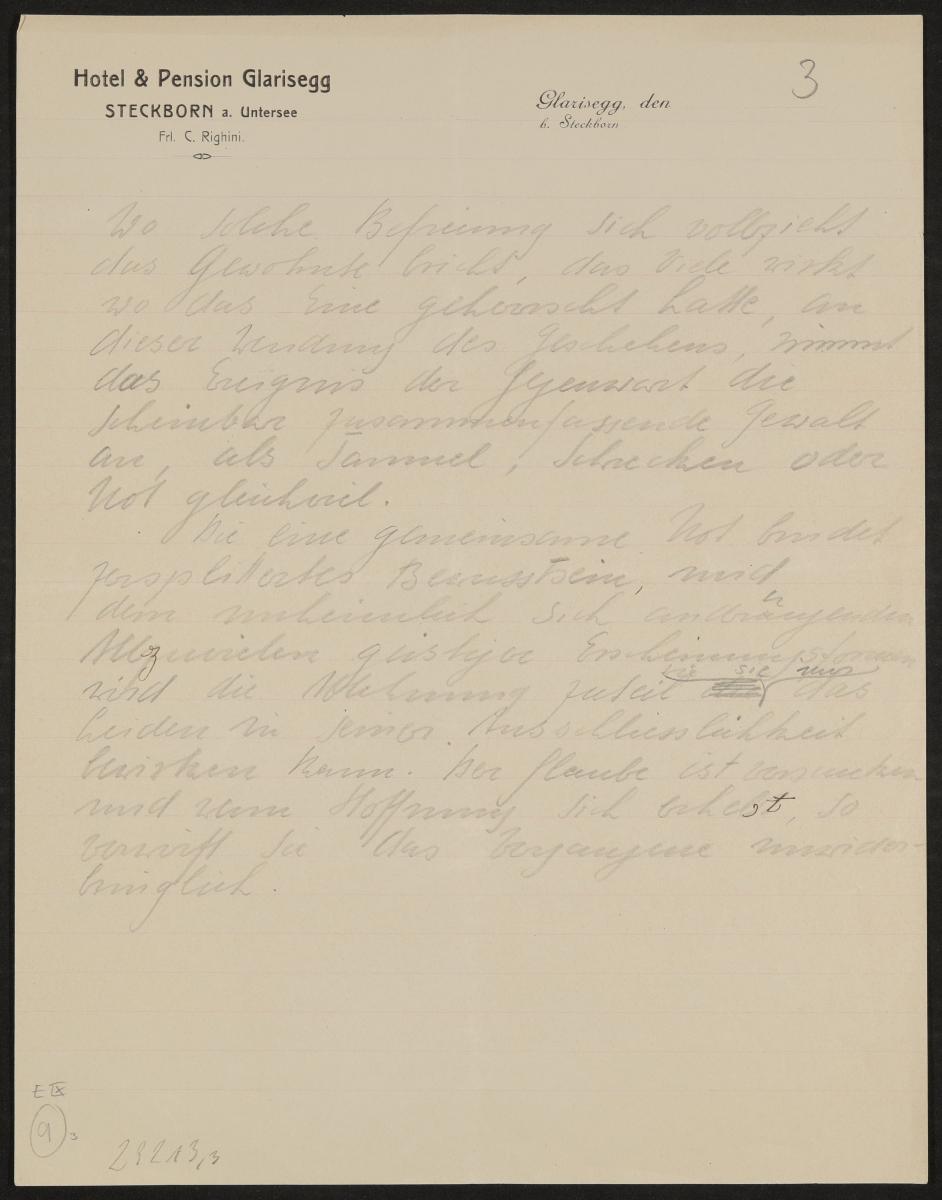 Hotel & Pension Glarisegg
STECKBORN a. Untersee
Frl. C. Righini.
Glarisegg, den
b. Steckborn
3
Wo solche Befreiung sich vollzieht
das Gewohnte bricht, das Viele wirkt
wo das Eine geherrscht hatte, an
dieser Wendung des Geschehens, nimmt
das Ereignis der Gegenwart die
scheinbar zusammenfassende Gewalt
an, als Taumel, Schrecken oder
Not gleichviel.
Die eine gemeinsame Not bindet
zersplittertes Bewusstsein, und
dem unheimlich sich andrängenden
Allzuvielen geistiger Erscheinungsformen
wird die Ablehnung zuteil die sie nur das
Leiden in seiner Ausschliesslichkeit
bewirken kann. Der Glaube ist versunken
und wenn Hoffnung sich erhebt, so
verwirft sie das Vergangene unwider-
bringlich.
E IX
9 3
23213,3